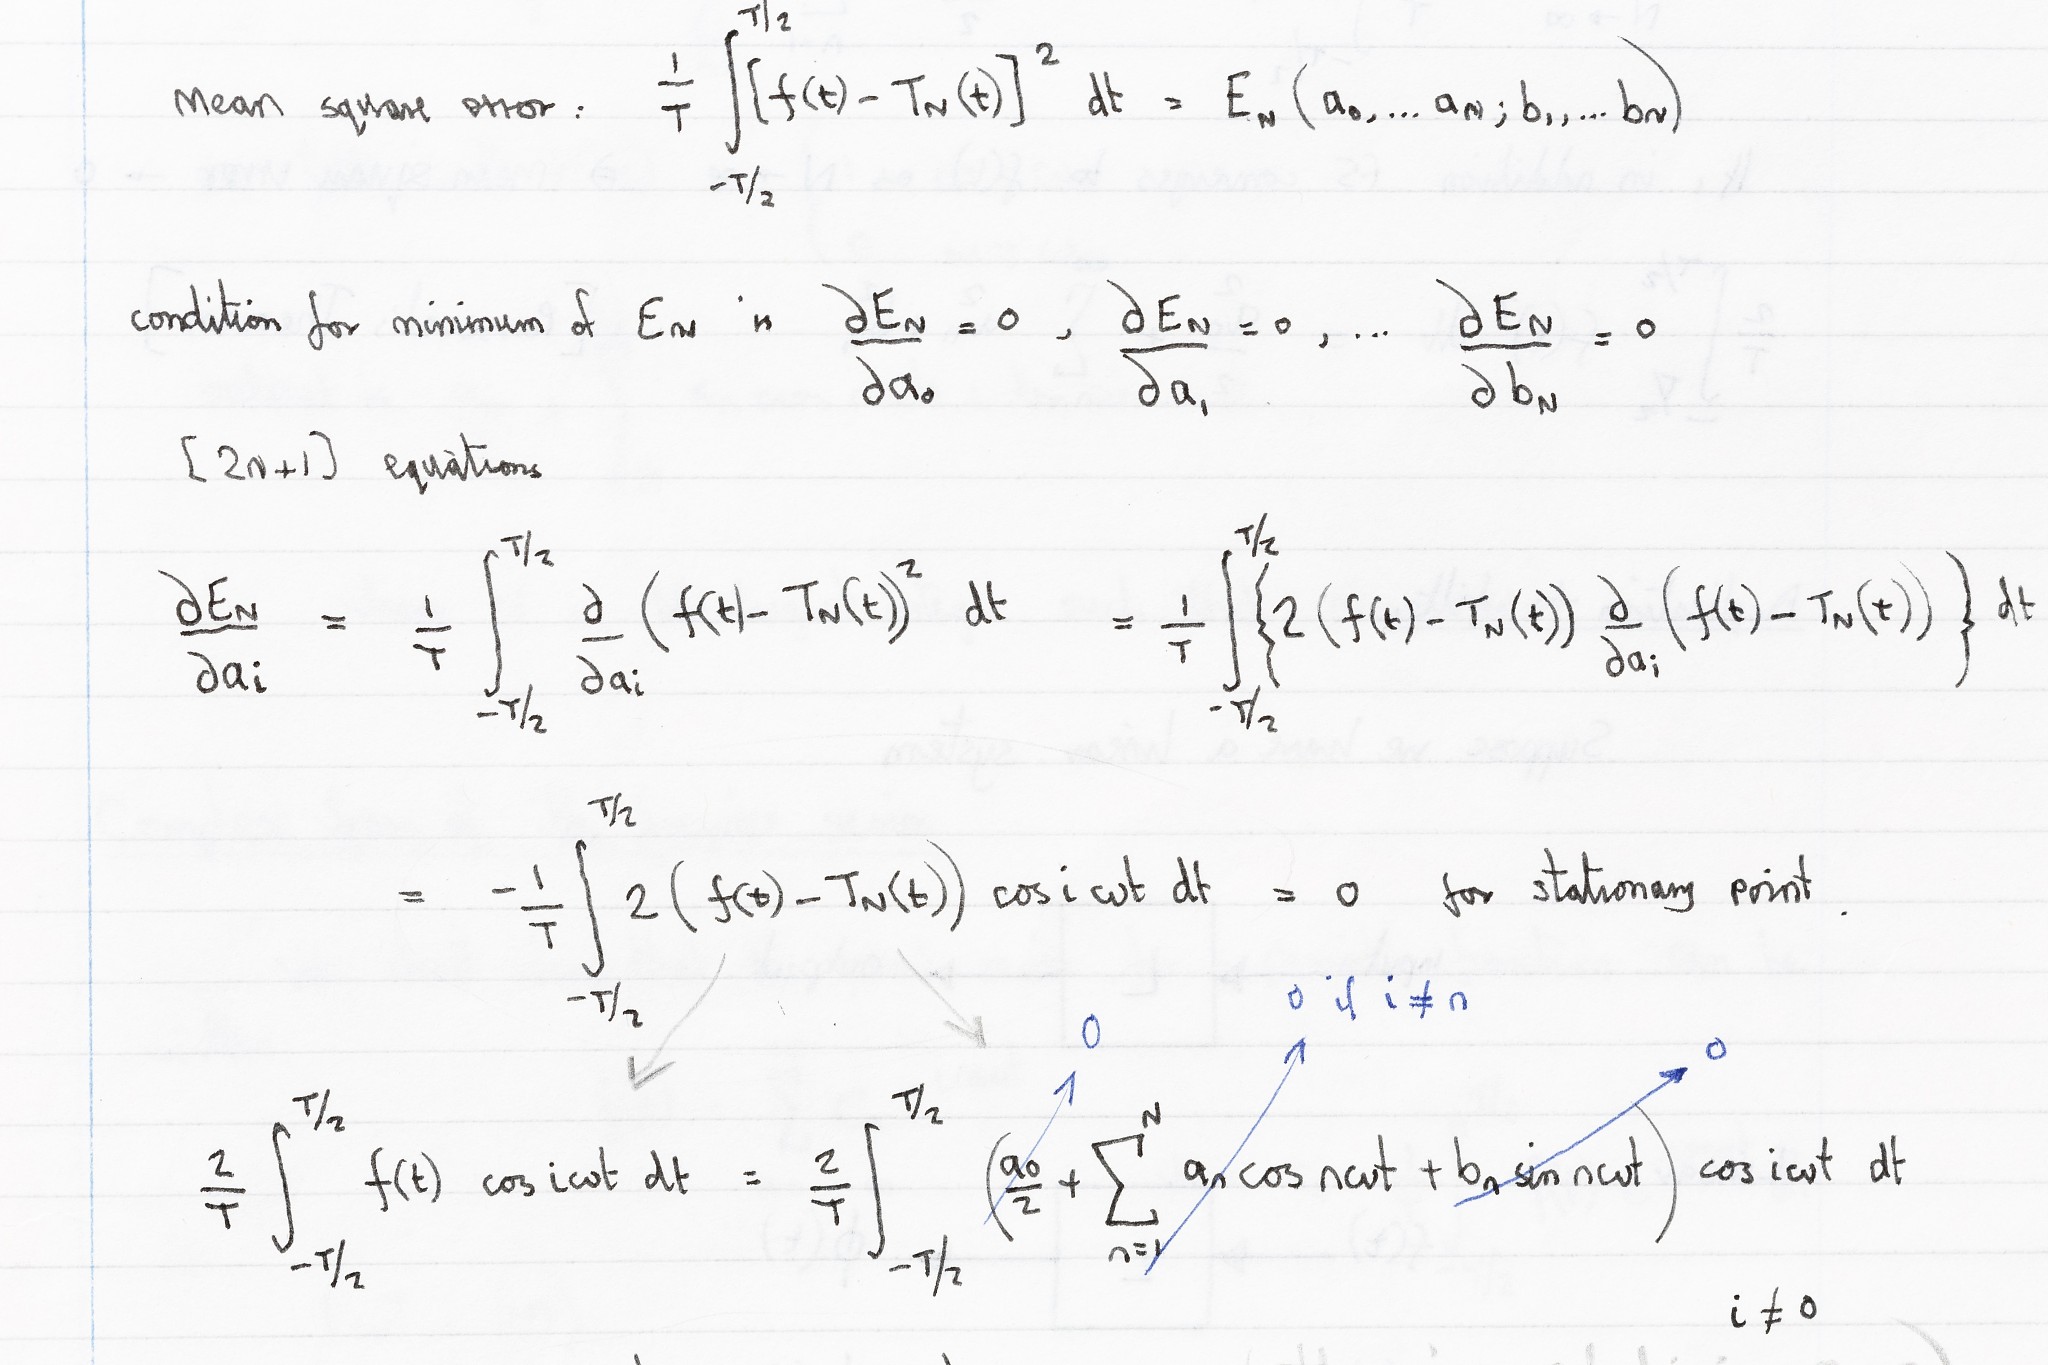 Mean square error: 1/T ∫_{-T/2}^{T/2} [f(t) - T_N(t)]² dt = E_N (a₀, ... a_N; b₁, ... b_N)
condition for minimum of E_N is ∂E_N/∂a₀ = 0, ∂E_N/∂a₁ = 0, ... ∂E_N/∂b_N = 0
[2N+1] equations
∂E_N/∂a_i = 1/T ∫_{-T/2}^{T/2} ∂/∂a_i (f(t) - T_N(t))² dt = 1/T ∫_{-T/2}^{T/2} {2 (f(t) - T_N(t)) ∂/∂a_i (f(t) - T_N(t))} dt
= -1/T ∫_{-T/2}^{T/2} 2 (f(t) - T_N(t)) cos iωt dt = 0 for stationary point.
0 0 if i ≠ n 0
2/T ∫_{-T/2}^{T/2} f(t) cos iωt dt = 2/T ∫_{-T/2}^{T/2} (a₀/2 + ∑_{n=1}^{N} a_n cos nωt + b_n sin nωt) cos iωt dt
i ≠ 0